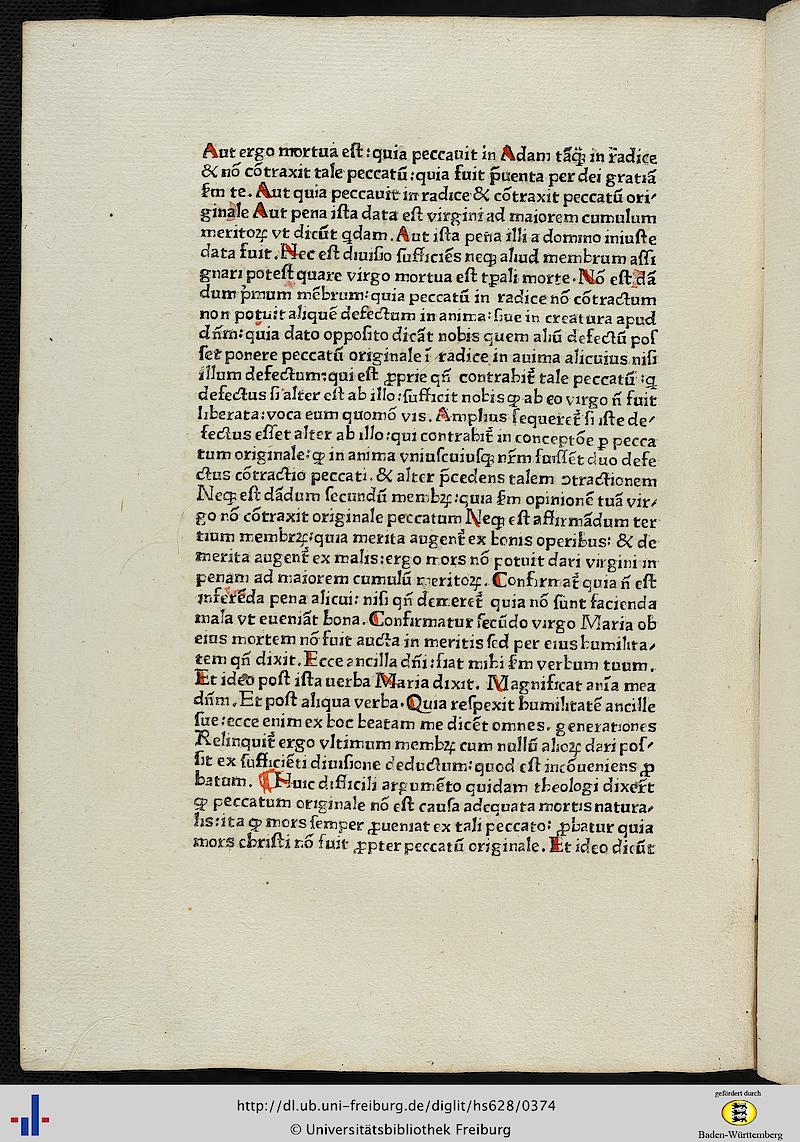 Aut ergo mortua est: quia peccauit in Adam tãq̃ in radice
& nõ cõtraxit tale peccatũ: quia fuit p̃uenta per dei gratiã
ẜm te. Aut quia peccauit in radice & cõtraxit peccatũ ori⸗
ginale Aut pena ista data est virgini ad maiorem cumulum
meritoꝝ vt dicũt qdam. Aut ista pena illi a domino iniuste
data fuit. Nec est diuisio sufficiẽs neqꝫ aliud membrum assi
gnari potest quare virgo mortua est tꝑali morte. Nõ est dã
dum p̃mum mẽbrum: quia peccatũ in radice nõ cõtractum
non potuit aliquẽ defectum in anima: siue in creatura apud
dñm: quia dato opposito dicãt nobis quem aliũ defectũ pos
set ponere peccatũ originale ĩ radice in anima alicuius nisi
illum defectum: qui est ꝓprie qñ contrahit̃ tale peccatũ: q
defectus si alter est ab illo: sufficit nobis ꝙ ab eo virgo ñ fuit
liberata: voca eum quomõ vis. Amplius sequeret̃ si iste de⸗
fectus esset alter ab illo: qui contrahit̃ in conceptõe ꝓ pecca
tum originale: ꝙ in anima vniuscuiusqꝫ nr̃m fuissẽt duo defe
ctus cõtractio peccati. & alter p̃cedens talem ↄtractionem
Neqꝫ est dãdum secundũ membꝝ: quia ẜm opinionẽ tuã vir⸗
go nõ cõtraxit originale peccatum Neqꝫ est affirmãdum ter
tium membꝝ: quia merita augent̃ ex bonis operibus: & de
merita augent̃ ex malis: ergo mors nõ potuit dari virgini in
penam ad maiorem cumulũ meritoꝝ. Confirmat̃ quia ñ est
inferẽda pena alicui: nisi qñ demeret̃ quia nõ sunt facienda
mala vt eueniãt bona. Confirmatur secũdo virgo Maria ob
eius mortem nõ fuit aucta in meritis sed per eius humilita⸗
tem qñ dixit. Ecce ancilla dñi: fiat mihi ẜm verbum tuum.
Et ideo post ista uerba Maria dixit. Magnificat aĩa mea
dñm. Et post aliqua verba. Quia respexit humilitatẽ ancille
sue: ecce enim ex hoc beatam me dicẽt omnes. generationes
Relinquit̃ ergo vltimum membꝝ cum nullũ alioꝝ dari pos⸗
sit ex sufficiẽti diuisione deductum: quod est incõueniens ꝓ
batum. ¶Huic difficili argumẽto quidam theologi dixert̃
ꝙ peccatum originale nõ est causa adequata mortis natura⸗
lis: ita ꝙ mors semper ꝓueniat ex tali peccato: ꝓbatur quia
mors christi nõ fuit ꝓpter peccatũ originale. Et ideo dicũt
http://dl.ub.uni-freiburg.de/diglit/hs628/0374
© Universitätsbibliothek Freiburg
gefördert durch
Baden-Württemberg